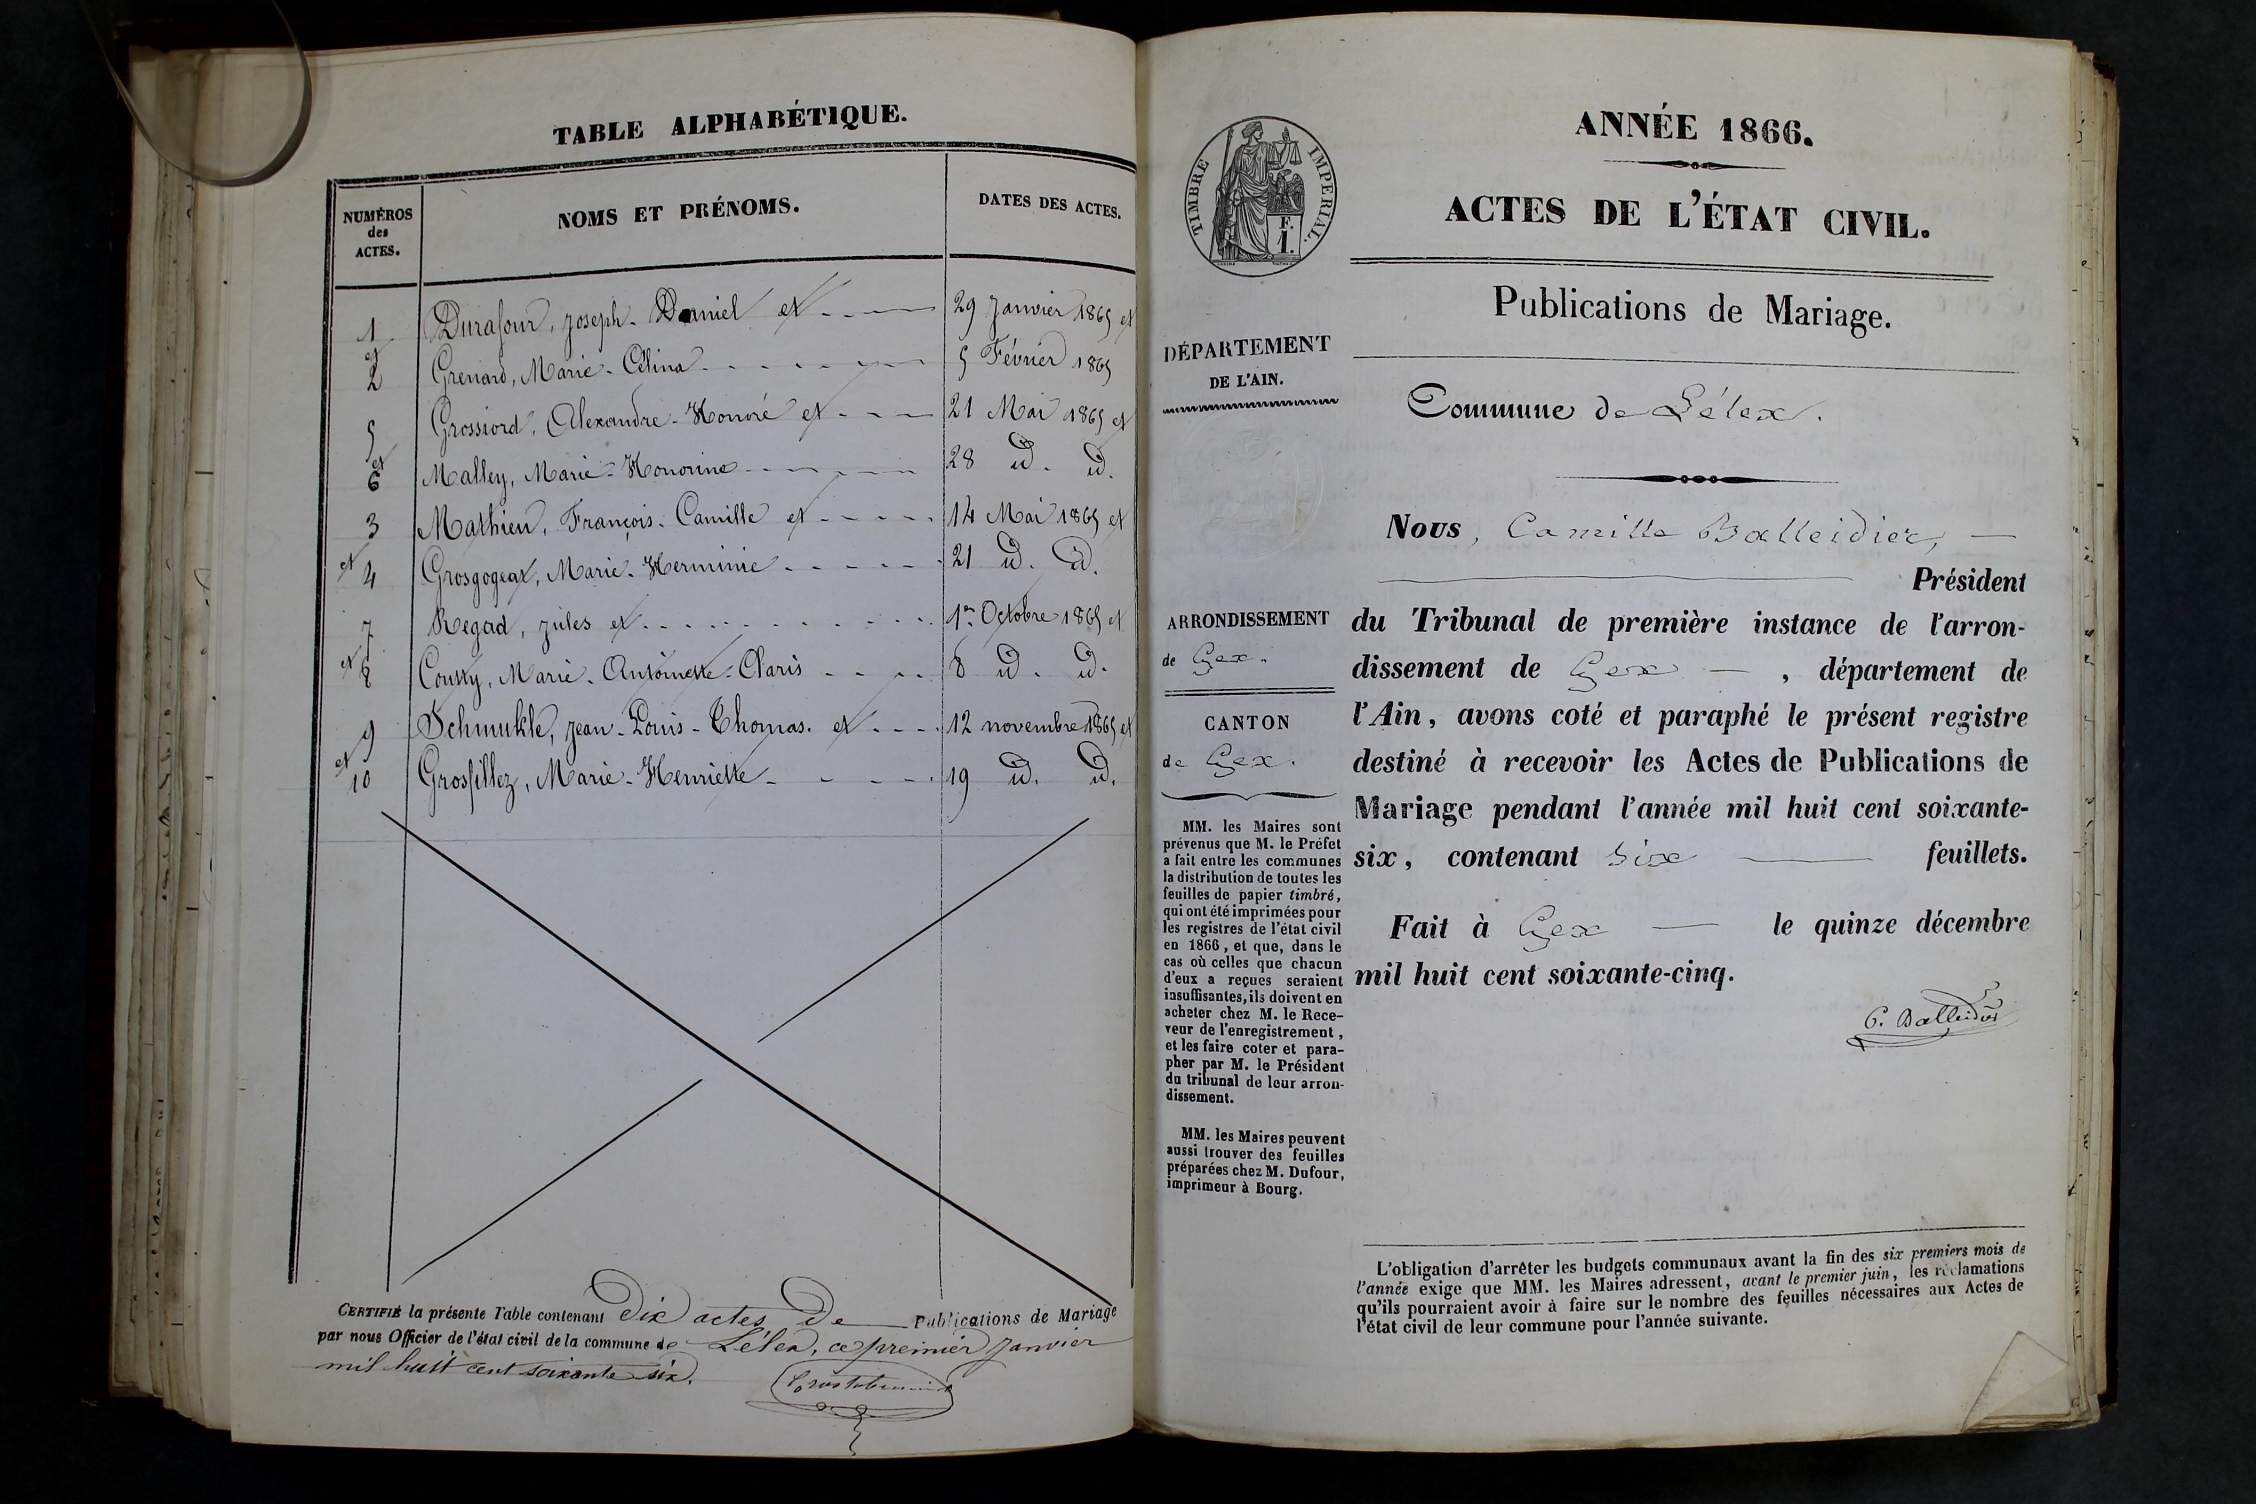 TABLE ALPHABÉTIQUE.
NUMÉROS
des
ACTES.
NOMS ET PRÉNOMS.
DATES DES ACTES.
1 Durafour, Joseph-Daniel et 29 Janvier 1865 et
et 2 Grenard, Marie-Célina 5 Février 1865
5 Grossiord, Alexandre-Honoré et 21 Mai 1865 et
et 6 Malley, Marie-Honorine 28 id. id.
3 Mathieu, François-Camille et 14 Mai 1865 et
et 4 Grosgogeat, Marie-Herminie 21 id. id.
7 Regad, Jules et 1er Octobre 1865 et
et 8 Coutty, Marie-Antoinette-Claris 8 id. id.
9 Schmukle, Jean-Louis-Thomas. et 12 novembre 1865 et
et 10 Grosfillez, Marie-Henriette 19 id. id.
CERTIFIÉ la présente Table contenant dix actes de Publications de Mariage
par nous Officier de l'état civil de la commune de Lélex, ce premier janvier
mil huit cent soixante six.
ANNÉE 1866.
ACTES DE L'ÉTAT CIVIL.
Publications de Mariage.
TIMBRE IMPERIAL.
F.
1.
DÉPARTEMENT
DE L'AIN.
Commune de Lélex.
ARRONDISSEMENT
de Gex.
CANTON
de Gex.
MM. les Maires sont
prévenus que M. le Préfet
a fait entre les communes
la distribution de toutes les
feuilles de papier timbré,
qui ont été imprimées pour
les registres de l'état civil
en 1866, et que, dans le
cas où celles que chacun
d'eux a reçues seraient
insuffisantes, ils doivent en
acheter chez M. le Rece-
veur de l'enregistrement,
et les faire coter et para-
pher par M. le Président
du tribunal de leur arron-
dissement.
MM. les Maires peuvent
aussi trouver des feuilles
préparées chez M. Dufour,
imprimeur à Bourg.
Nous, Camille Balleidier,
Président
du Tribunal de première instance de l'arron-
dissement de Gex, département de
l'Ain, avons coté et paraphé le présent registre
destiné à recevoir les Actes de Publications de
Mariage pendant l'année mil huit cent soixante-
six, contenant six feuillets.
Fait à Gex le quinze décembre
mil huit cent soixante-cinq.
C. Balleidier
L'obligation d'arrêter les budgets communaux avant la fin des six premiers mois de
l'année exige que MM. les Maires adressent, avant le premier juin, les réclamations
qu'ils pourraient avoir à faire sur le nombre des feuilles nécessaires aux Actes de
l'état civil de leur commune pour l'année suivante.